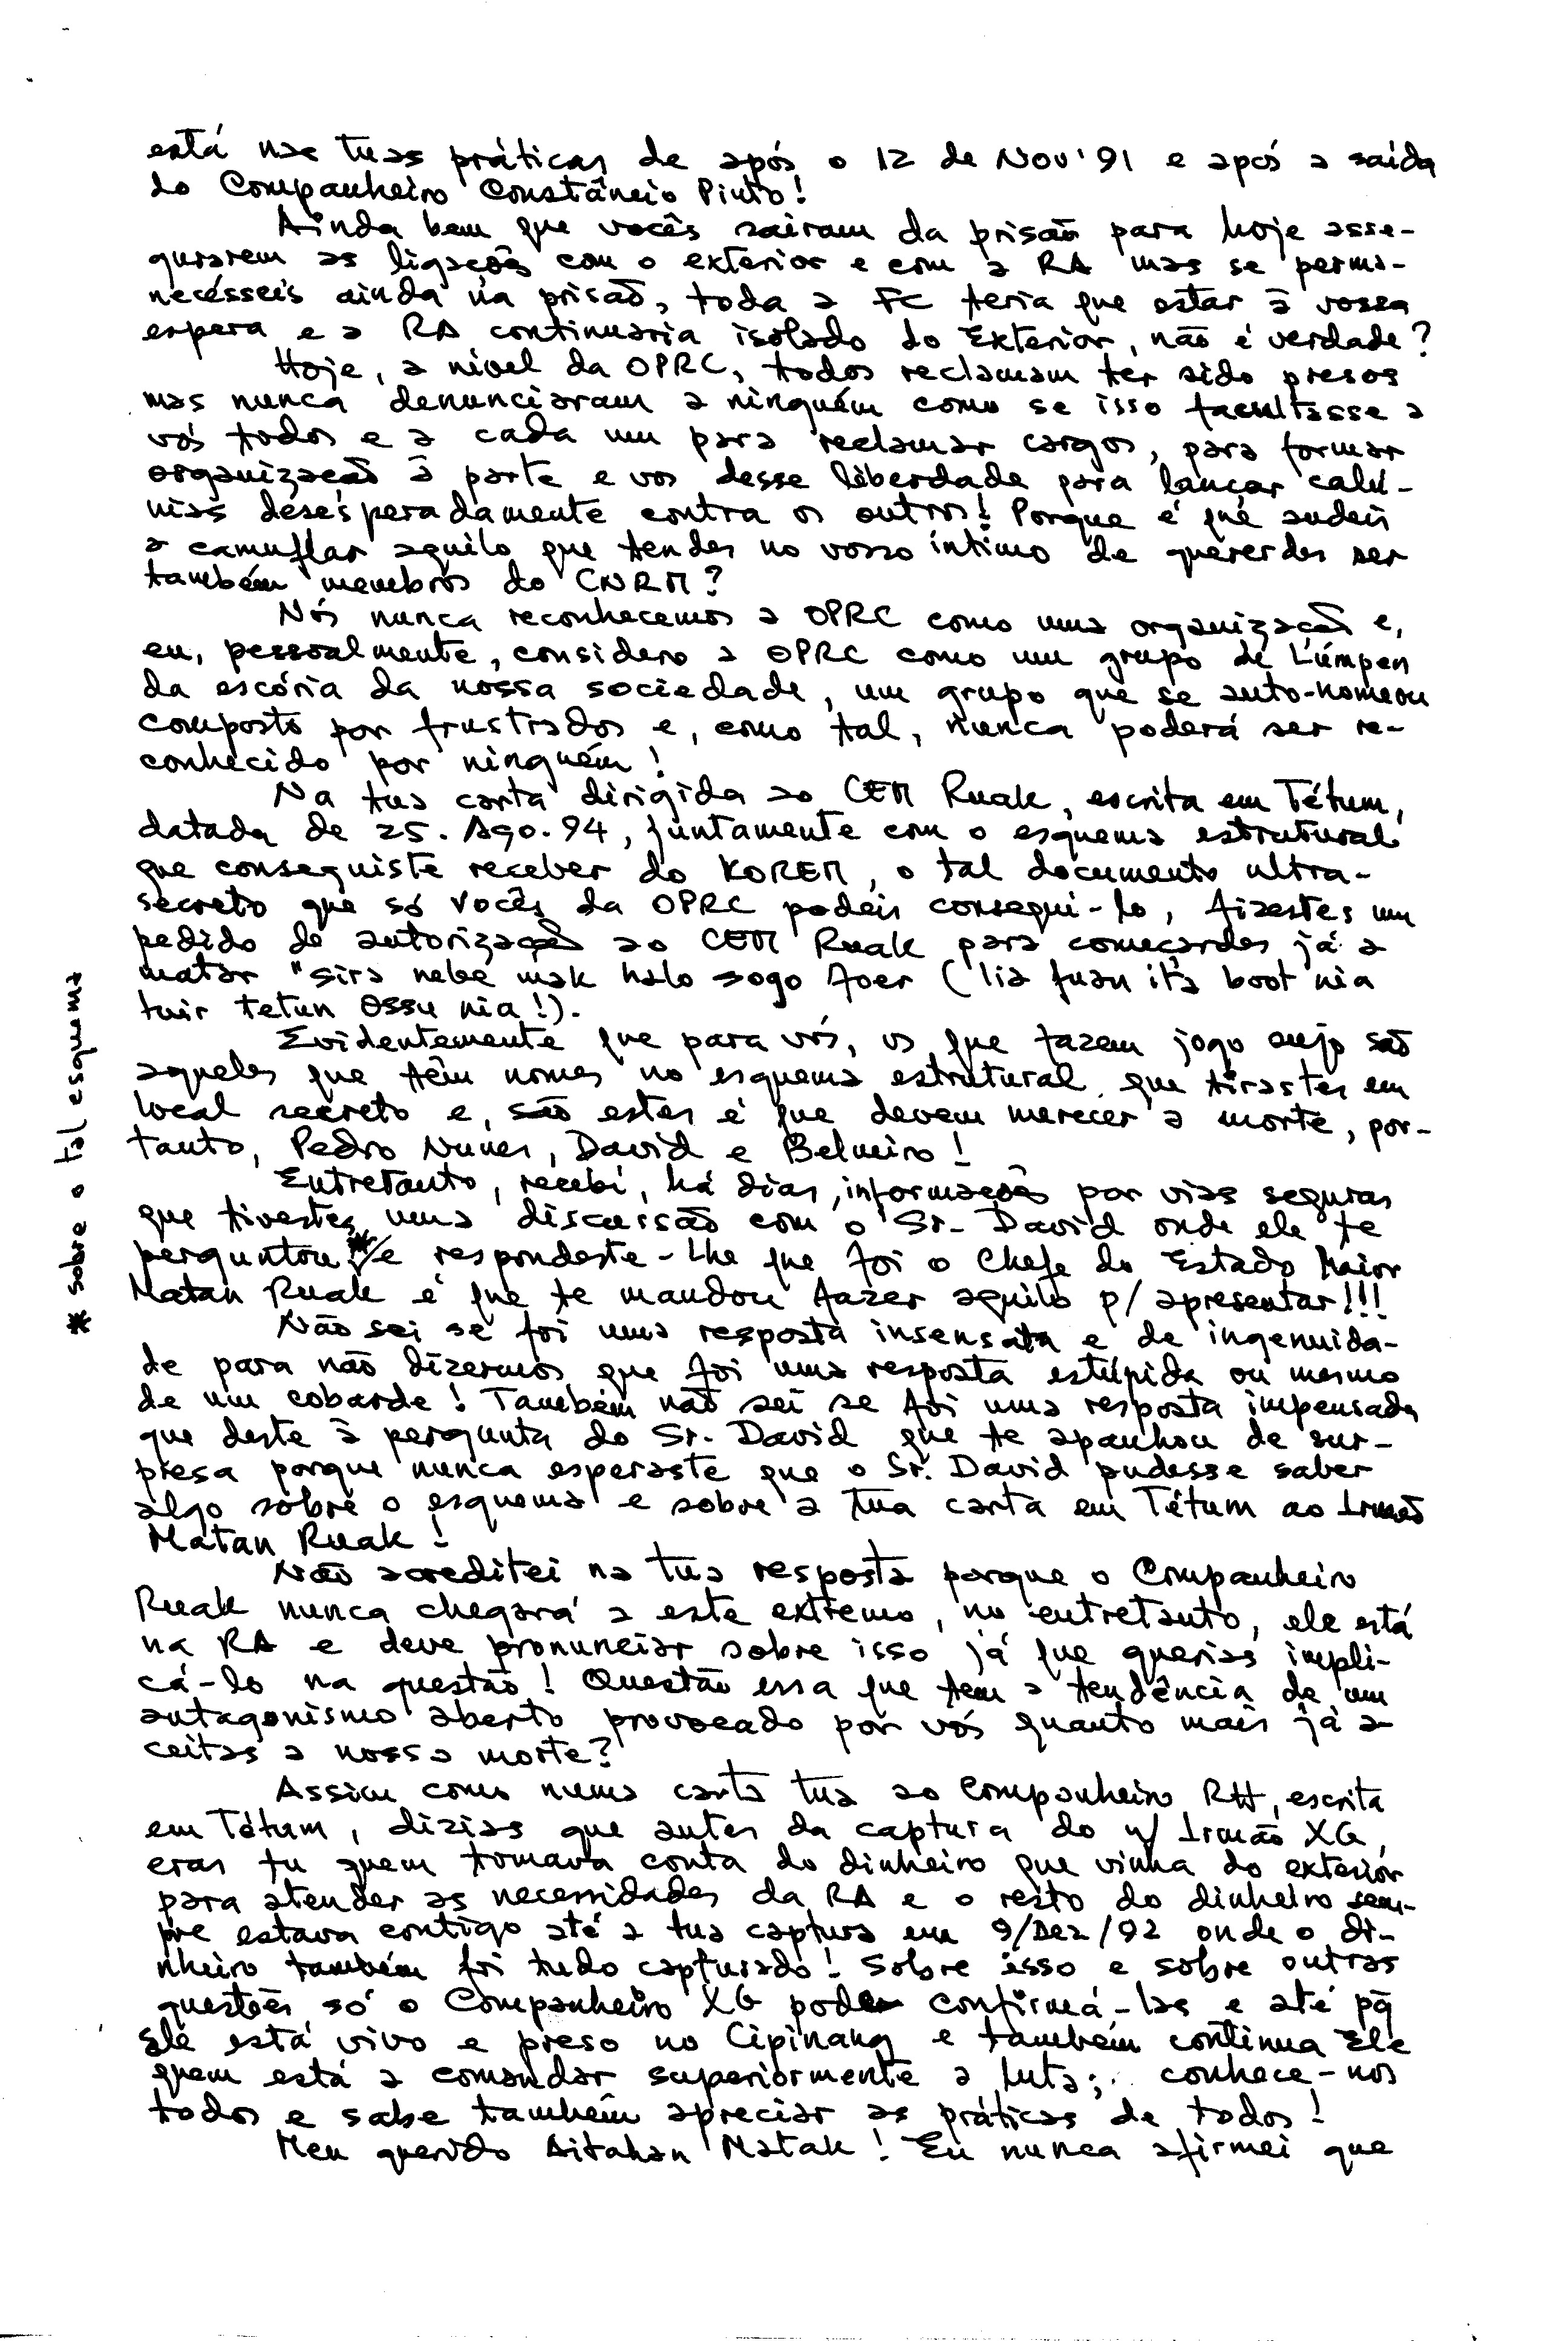 está nas tuas práticas de após o 12 de Nov'91 e após a saída
do Companheiro Constâncio Pinto!
Ainda bem que vocês sairam da prisão para hoje asse-
gurarem as ligações com o exterior e com a RA mas se perma-
necésseis ainda na prisão, toda a FC teria que estar à vossa
espera e a RA continuaria isolado do Exterior, não é verdade?
Hoje, a nível da OPRC, todos reclamam ter sido presos
mas nunca denunciaram a ninguém como se isso facultasse a
vós todos e a cada um para reclamar cargos, para formar
organização à parte e vos desse liberdade para lançar calú-
nias desesperadamente contra os outros! Porque é que andeis
a camuflar aquilo que tendes no vosso íntimo de quererdes ser
também membros do CNRM?
Nós nunca reconhecemos a OPRC como uma organização e,
eu, pessoalmente, considero a OPRC como um grupo de Lúmpen
da escória da nossa sociedade, um grupo que se auto-nomeou
composto por frustrados e, como tal, nunca poderá ser re-
conhecido por ninguém!
Na tua carta dirigida ao CEM Ruak, escrita em Tétum,
datada de 25. Ago. 94, juntamente com o esquema estrutural
que conseguiste receber do KOREM, o tal documento ultra-
secreto que só vocês da OPRC podeis consegui-lo, fizestes um
pedido de autorização ao CEM Ruak para começardes já a
matar "sira nebé mak halo jogo foer (lia fuan ita boot nia
tuir tetun Ossu nia!).
Evidentemente que para vós, os que fazem jogo sujo são
aqueles que têm nomes no esquema estrutural que tirastes em
local secreto e, são estes é que devem merecer a morte, por-
tanto, Pedro Nunes, David e Belmiro!
Entretanto, recebi, há dias, informações por vias seguras
que tivestes uma discussão com o Sr. David onde ele te
perguntou * e respondeste-lhe que foi o Chefe do Estado Maior
Matan Ruak é que te mandou fazer aquilo p/ apresentar!!!
Não sei se foi uma resposta insensata e de ingenuida-
de para não dizermos que foi uma resposta estúpida ou mesmo
de um cobarde! Também não sei se foi uma resposta impensada
que deste à pergunta do Sr. David que te apanhou de sur-
presa porque nunca esperaste que o Sr. David pudesse saber
algo sobre o esquema e sobre a tua carta em Tétum ao Irmão
Matan Ruak!
Não acreditei na tua resposta porque o Companheiro
Ruak nunca chegará a este extremo, no entretanto, ele está
na RA e deve pronunciar sobre isso já que querias impli-
cá-lo na questão! Questão essa que tem a tendência de um
antagonismo aberto provocado por vós quanto mais já a-
ceitas a nossa morte?
Assim como numa carta tua ao Companheiro RH, escrita
em Tétum, dizias que antes da captura do n/ Irmão XG,
eras tu quem tomava conta do dinheiro que vinha do exterior
para atender as necessidades da RA e o resto do dinheiro sem-
pre estava contigo até a tua captura em 9/Dez/92 onde o di-
nheiro também foi tudo capturado! Sobre isso e sobre outras
questões só o Companheiro XG pode confirmá-las e até pq
Ele está vivo e preso no Cipinang e também continua Ele
quem está a comandar superiormente a luta; conhece-nos
todos e sabe também apreciar as práticas de todos!
Meu querido Aitahan Matak! Eu nunca afirmei que
* sobre o tal esquema